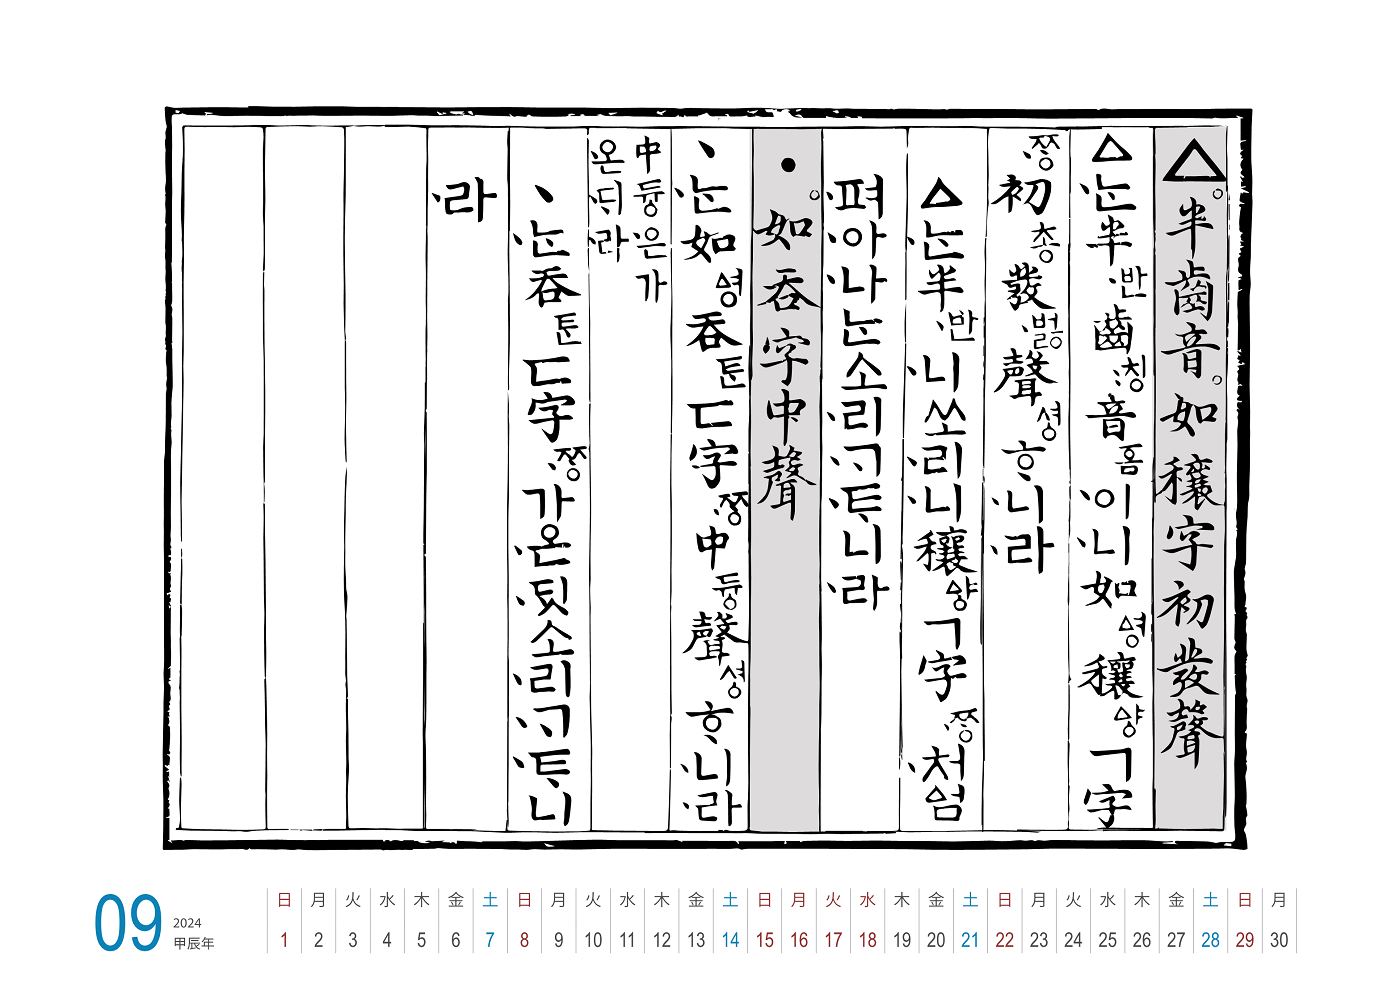 ㅿ。半齒音。如穰字初發聲
ㅿ·는半·반齒:칭音ᅙᅳᆷ·이·니如ᅀᅧᆼ穰ᅀᅣᆼㄱ字
·ᄍᆞᆼ初총發·버ᇙ聲셩ᄒᆞ·니·라
ㅿ·는半·반·니쏘·리·니穰ᅀᅣᆼㄱ字·ᄍᆞᆼ·처ᅀᅥᆷ
·펴·아·나는소·리·ᄀᆞ·ᄐᆞ니·라
ㆍ。如呑字中聲
ㆍ·는如ᅀᅧᆼ呑ᄐᆞᆫㄷ字·ᄍᆞᆼ中듀ᇰ聲셩ᄒᆞ·니·라
中듀ᇰ·은가
·온·ᄃᆡ·라
ㆍ·는呑ᄐᆞᆫㄷ字·ᄍᆞᆼ가·온·ᄃᆡᆺ소·리·ᄀᆞ·ᄐᆞ니
·라
09 2024
甲辰年
日 月 火 水 木 金 土 日 月 火 水 木 金 土 日 月 火 水 木 金 土 日 月 火 水 木 金 土 日 月
1 2 3 4 5 6 7 8 9 10 11 12 13 14 15 16 17 18 19 20 21 22 23 24 25 26 27 28 29 30